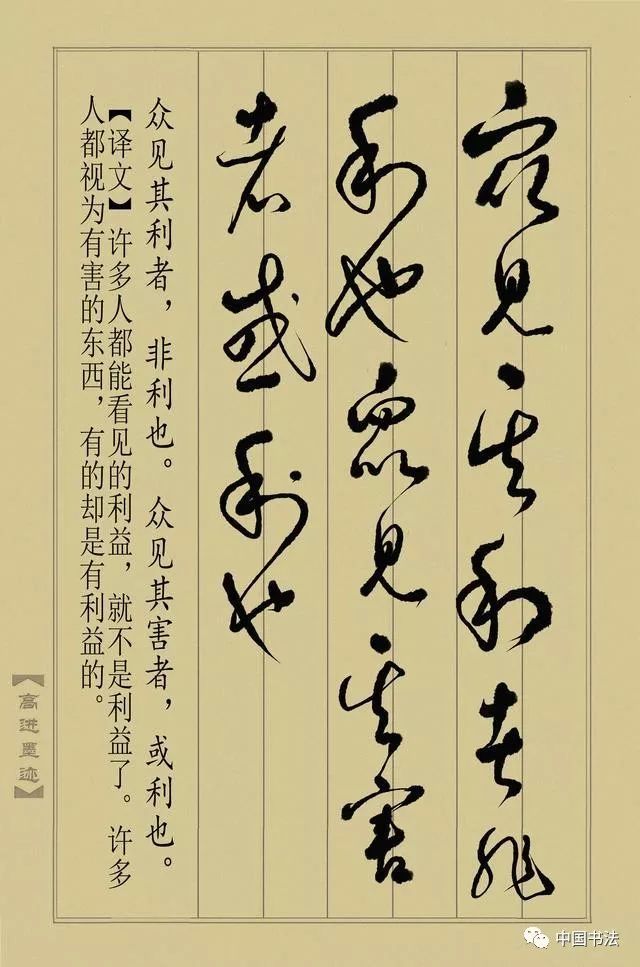 众見其利者非
利也眾見其害
者或利也
众见其利者，非利也。众见其害者，或利也。
【译文】许多人都能看见的利益，就不是利益了。许多
人都视为有害的东西，有的却是有利益的。
【高进墨迹】
中国书法